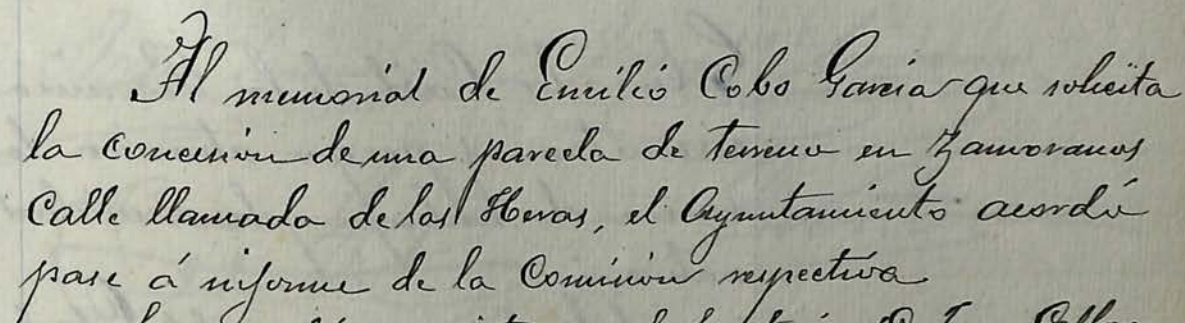 Al memorial de Emilio Cobo Garcia que solicita
la concesión de una parcela de terreno en Zamoranos
Calle llamada de las Heras, el Ayuntamiento acordó
pase á informe de la Comision respectiva